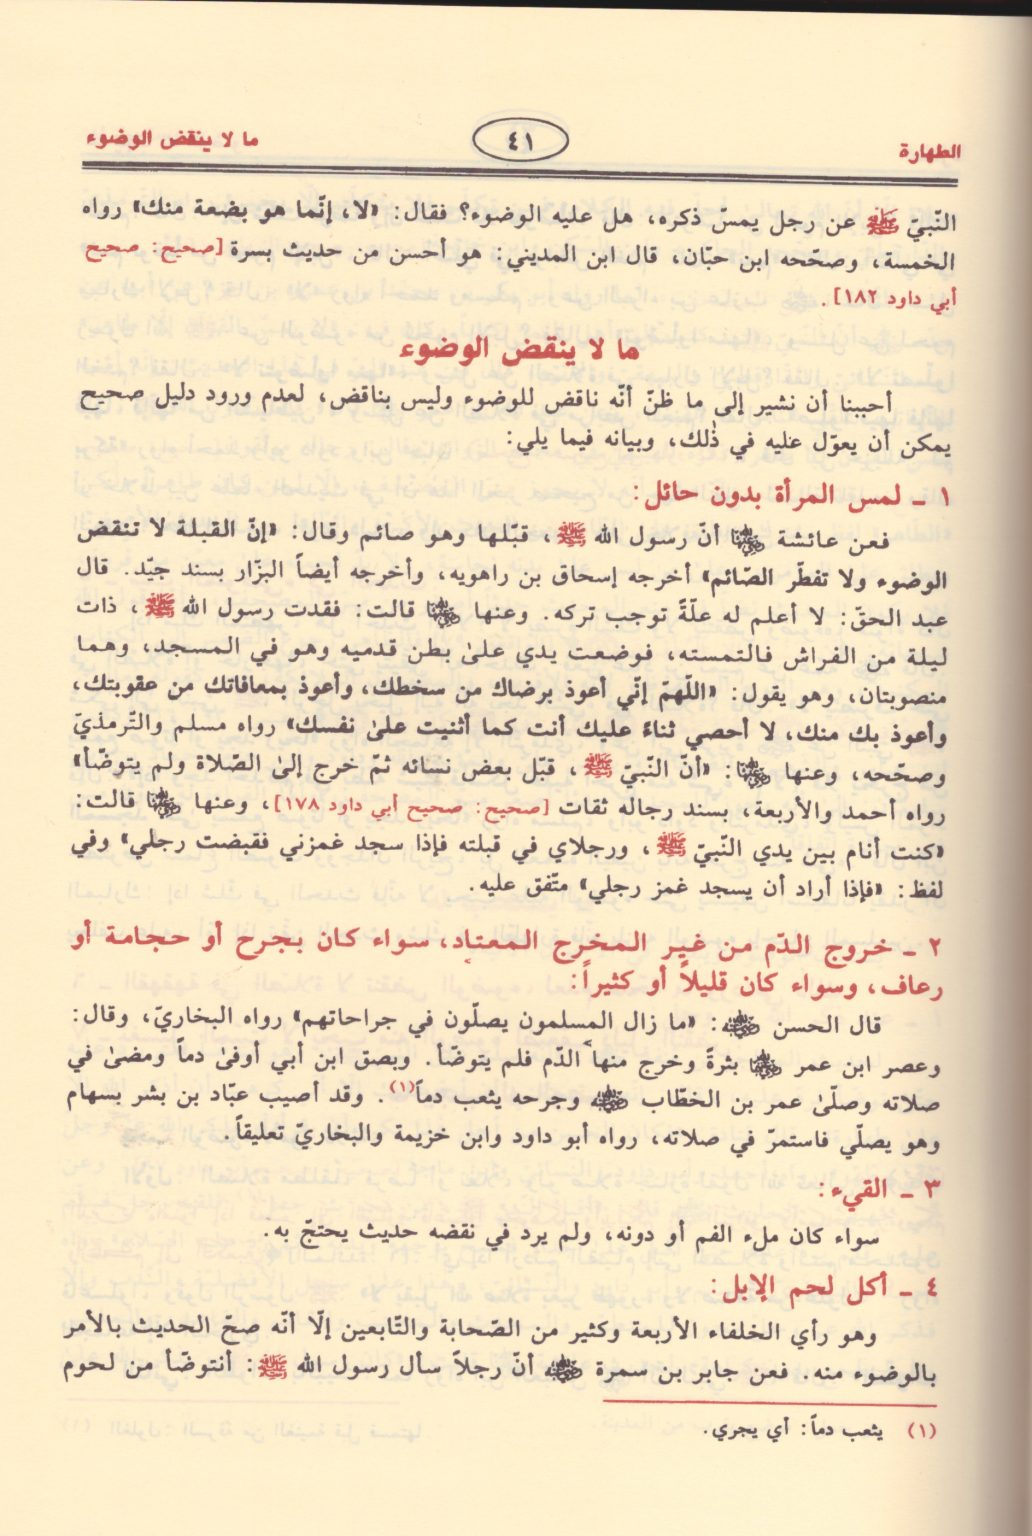 الطهارة
٤١
ما لا ينقض الوضوء
النّبيّ ﷺ عن رجل يمسّ ذكره، هل عليه الوضوء؟ فقال: «لا، إنّما هو بضعة منك» رواه
الخمسة، وصحّحه ابن حبّان، قال ابن المديني: هو أحسن من حديث بسرة [صحيح: صحيح
أبي داود ١٨٢].
ما لا ينقض الوضوء
أحببنا أن نشير إلى ما ظنّ أنّه ناقض للوضوء وليس بناقض، لعدم ورود دليل صحيح
يمكن أن يعوّل عليه في ذٰلك، وبيانه فيما يلي:
١ ـ لمس المرأة بدون حائل:
فعن عائشة رضي الله عنها أنّ رسول الله ﷺ، قبّلها وهو صائم وقال: «إنّ القبلة لا تنقض
الوضوء ولا تفطّر الصّائم» أخرجه إسحاق بن راهويه، وأخرجه أيضاً البزّار بسند جيّد. قال
عبد الحقّ: لا أعلم له علّةً توجب تركه. وعنها رضي الله عنها قالت: فقدت رسول الله ﷺ، ذات
ليلة من الفراش فالتمسته، فوضعت يدي علىٰ بطن قدميه وهو في المسجد، وهما
منصوبتان، وهو يقول: «اللّهمّ إنّي أعوذ برضاك من سخطك، وأعوذ بمعافاتك من عقوبتك،
وأعوذ بك منك، لا أحصي ثناءً عليك أنت كما أثنيت علىٰ نفسك» رواه مسلم والتّرمذيّ
وصحّحه، وعنها رضي الله عنها: «أنّ النّبيّ ﷺ، قبّل بعض نسائه ثمّ خرج إلىٰ الصّلاة ولم يتوضّأ»
رواه أحمد والأربعة، بسند رجاله ثقات [صحيح: صحيح أبي داود ١٧٨]، وعنها رضي الله عنها قالت:
«كنت أنام بين يدي النّبيّ ﷺ، ورجلاي في قبلته فإذا سجد غمزني فقبضت رجلي» وفي
لفظ: «فإذا أراد أن يسجد غمز رجلي» متّفق عليه.
٢ ـ خروج الدّم من غير المخرج المعتاد، سواء كان بجرح أو حجامة أو
رعاف، وسواء كان قليلاً أو كثيراً:
قال الحسن رضي الله عنه: «ما زال المسلمون يصلّون في جراحاتهم» رواه البخاريّ، وقال:
وعصر ابن عمر رضي الله عنهما بثرةً وخرج منها الدّم فلم يتوضّأ. وبصق ابن أبي أوفىٰ دماً ومضىٰ في
صلاته وصلّىٰ عمر بن الخطّاب رضي الله عنه وجرحه يثعب دماً(١). وقد أصيب عبّاد بن بشر بسهام
وهو يصلّي فاستمرّ في صلاته، رواه أبو داود وابن خزيمة والبخاريّ تعليقاً.
٣ ـ القيء:
سواء كان ملء الفم أو دونه، ولم يرد في نقضه حديث يحتجّ به.
٤ ـ أكل لحم الإبل:
وهو رأي الخلفاء الأربعة وكثير من الصّحابة والتّابعين إلّا أنّه صحّ الحديث بالأمر
بالوضوء منه. فعن جابر بن سمرة رضي الله عنه أنّ رجلاً سأل رسول الله ﷺ: أنتوضّأ من لحوم
(١) يثعب دماً: أي يجري.